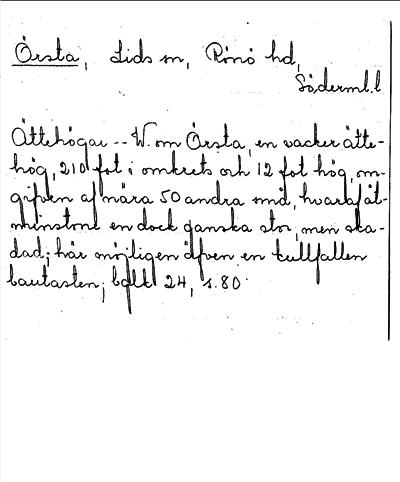 Örsta, Lids sn, Rönö hd,
Söderml.l
Ättehögar -- W. om Örsta, en vacker ätte-
hög, 210 fot i omkrets och 12 fot hög, om-
gifven af nära 50 andra små, hvaraf åt-
minstone en dock ganska stor, men ska-
dad; här möjligen äfven en kullfallen
bautasten;  24, s. 80